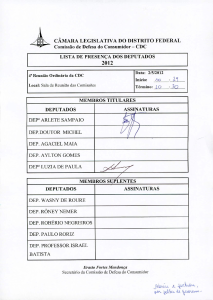 CÂMARA LEGISLATIVA DO DISTRITO FEDERAL
Comissão de Defesa do Consumidor – CDC
LISTA DE PRESENÇA DOS DEPUTADOS
2012
4ª Reunião Ordinária da CDC
Data: 2/5/2012
Início:
Local: Sala de Reunião das Comissões
Término:
MEMBROS TITULARES
DEPUTADOS ASSINATURAS
DEPª ARLETE SAMPAIO
DEP. DOUTOR MICHEL
DEP. AGACIEL MAIA
DEP. AYLTON GOMES
DEPª LUZIA DE PAULA
MEMBROS SUPLENTES
DEPUTADOS ASSINATURAS
DEP. WASNY DE ROURE
DEP. RÔNEY NEMER
DEP. ROBÉRIO NEGREIROS
DEP. PAULO RORIZ
DEP. PROFESSOR ISRAEL
BATISTA
Fortes Mendonça
Secretário da Comissão de Defesa do Consumidor